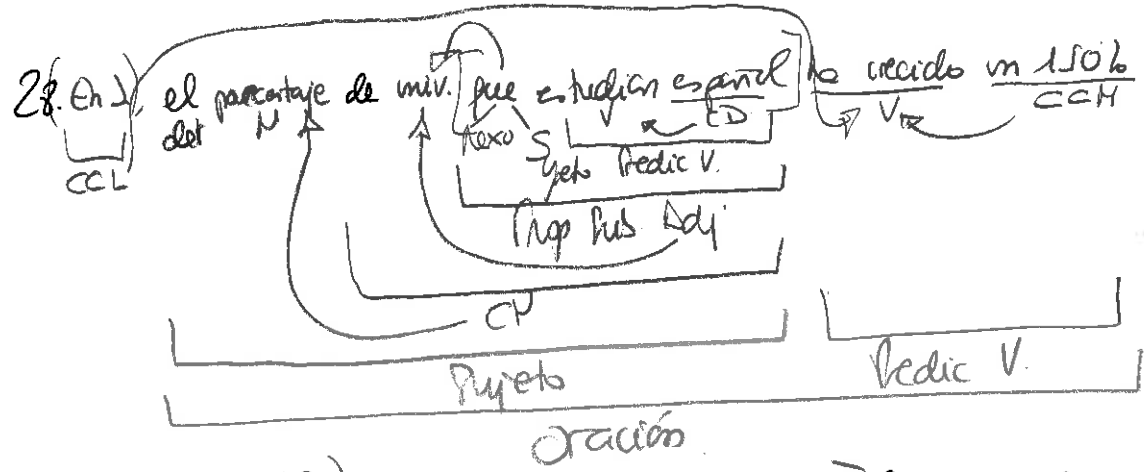 28. (En J), el porcentaje de univ. [que estudian español] ha crecido un 150%
det N V CD V CCM
CCL nexo Sujeto Predic V.
Prop Sub Adj
CN
Sujeto Predic V.
Oración